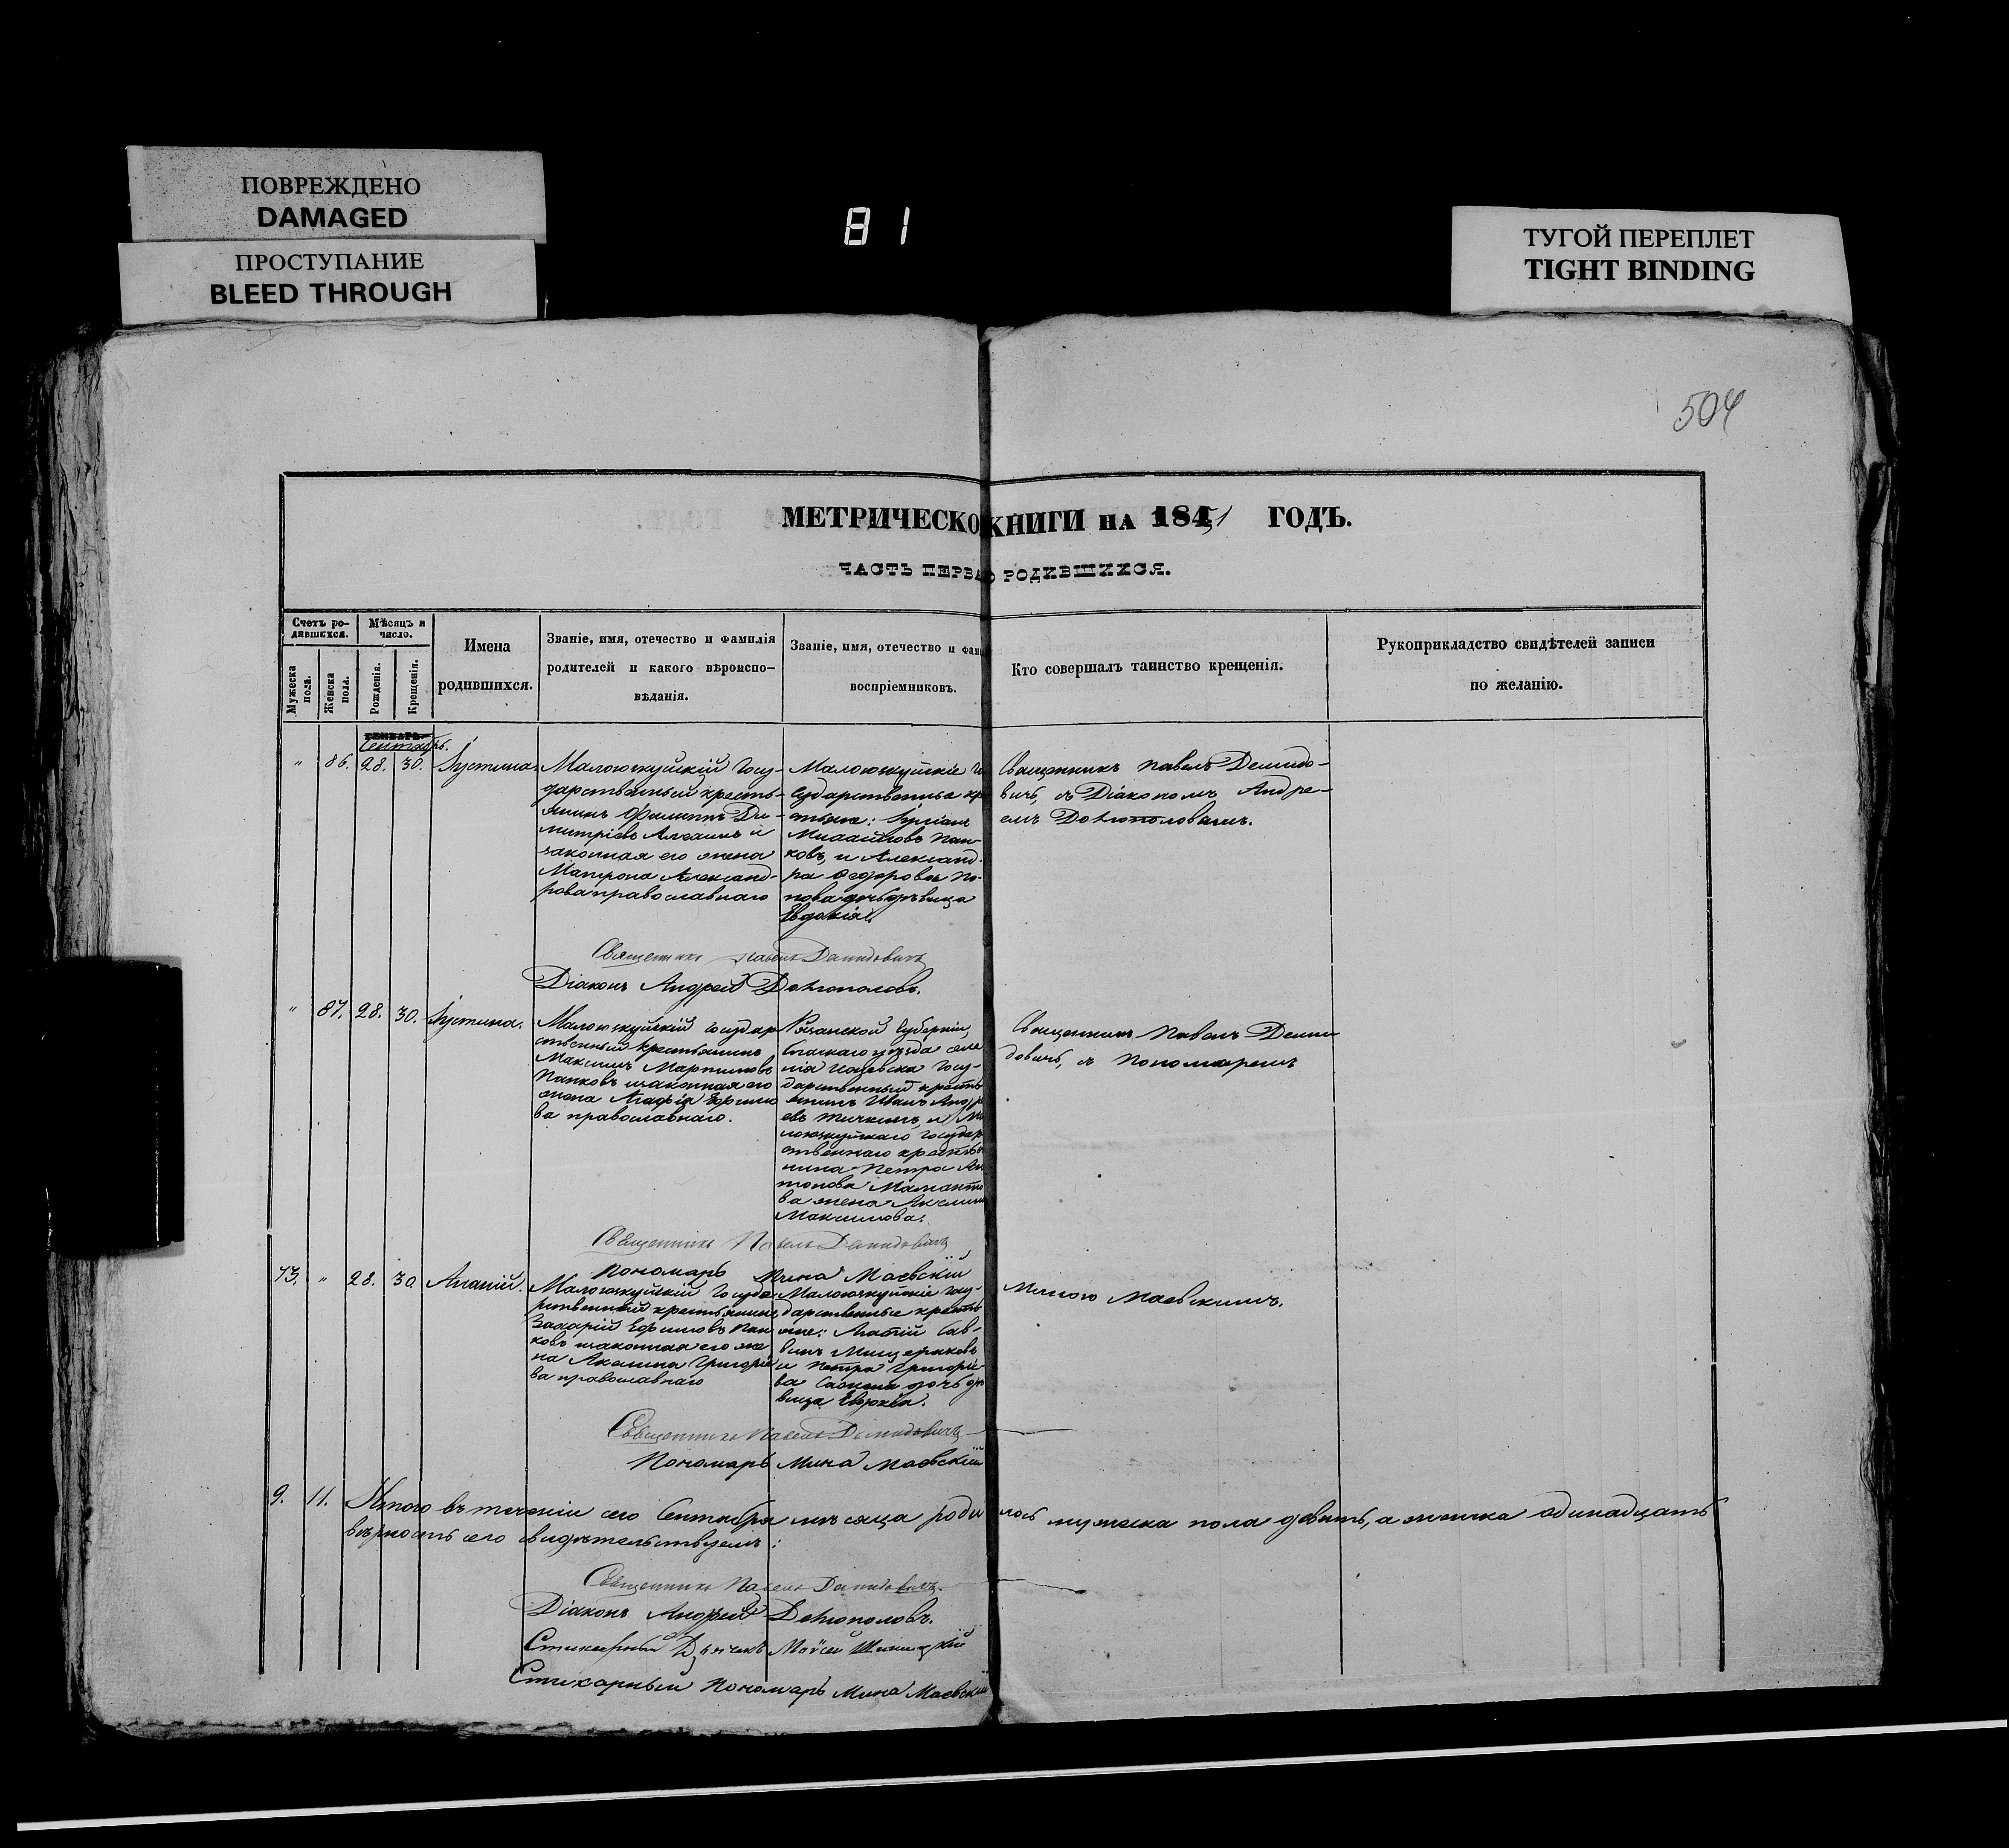 ПОВРЕЖДЕНО
DAMAGED
ПРОСТУПАНИЕ
BLEED THROUGH
81
ТУГОЙ ПЕРЕПЛЕТ
TIGHT BINDING
504
МЕТРИЧЕСКО КНИГИ НА 1851 ГОДЪ.
ЧАСТЬ ПЕРВА О РОДИВШИХСЯ.
Счетъ ро-
дившихся.
Мужеска пола.
Женска пола.
Мѣсяцъ и
число.
Рожденія.
Крещенія.
Имена
родившихся.
Званіе, имя, отечество и фамилія
родителей и какого вѣроиспо-
вѣданія.
Званіе, имя, отечество и фам
воспріемниковъ.
Кто совершалъ таинство крещенія.
Рукоприкладство свидѣтелей записи
по желанію.
ГЕНВАРЬ
Сентябрь.
" 86. 28. 30. Іустина.
Малоюзкуйскій Госу-
дарственный кресть-
янинъ Филиппъ Ди-
митріевъ и
законная его жена
Матрона Александ-
рова православнаго
Малоюзкуйскіе Го
сударственые кр
стьяне:
Пан-
ковъ, и Александ-
ра Ѳедорова По-
пова дочь дѣвица
Евдокія.
Священникъ Павелъ Демидо-
вичь, съ Діакономъ Андре-
емъ
Священникъ Павелъ Демидовичъ
Діаконъ Андрей
" 87. 28. 30. Іустина.
Малоюзкуйскій государ
ственный крестьянинъ
Максимъ Мартиновъ
Панковъ изаконная его
жена Агафія Ефимо
ва православнаго.
Рязанской Губерніи,
Спаскаго уѣзда селе
нія Госу-
дарственный кресть
янинъ Иванъ Андре
евъ и Ма
лоюзкуйскаго Государ
ственнаго крестья
нина Петра Ан
тонова
ва жена Акелина
Максимова.
Священникъ Павелъ Деми
довичь, съ Пономаремъ
Священникъ Павелъ Демидовичъ
Пономарь Мина Маевскій
73. " 28. 30. Ананій.
Малоюзкуйскій Госуда
рственный крестьянинъ
Захарій Ефимовъ Пан
ковъ изаконная его же
на Акелина Григоріе
ва православнаго
Малоюзкуйскіе госу-
дарственые кресть
яне: Сав-
винъ Мищеряковъ
и Петра Григоріе-
ва дочь дѣ
вица
Миною Маевскимъ.
Священникъ Павелъ Демидовичъ
Пономарь Мина Маевскій
9. 11. Итого въ теченіи сего Сентября мѣсяца родилось мужеска пола девять, а женска одинадцать
вѣрность сего свидѣтельствуемъ:
Священникъ Павелъ Демидовичъ.
Діаконъ Андрей
Стихарный Дьячекъ Моисей
Стихарный Пономарь Мина Маевскій